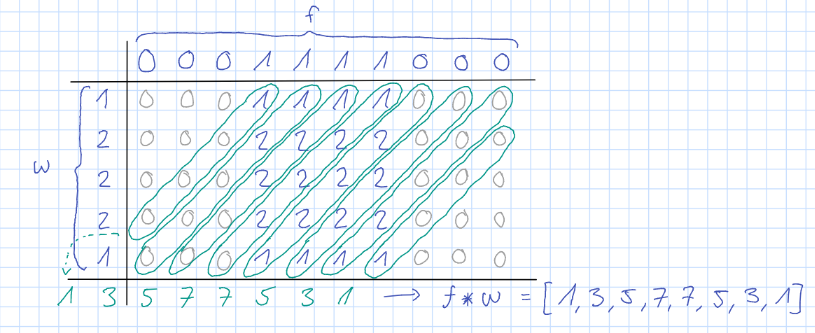 f
0 0 0 1 1 1 1 0 0 0
1 0 0 0 1 1 1 1 0 0 0
2 0 0 0 2 2 2 2 0 0 0
w 2 0 0 0 2 2 2 2 0 0 0
2 0 0 0 2 2 2 2 0 0 0
1 0 0 0 1 1 1 1 0 0 0
1 3 5 7 7 5 3 1 → f * w = [1, 3, 5, 7, 7, 5, 3, 1]